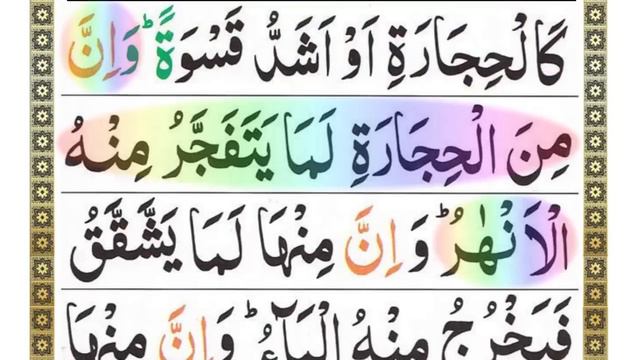 كَالْحِجَارَةِ اَوْ اَشَدُّ قَسْوَةً ؕ وَاِنَّ
مِنَ الْحِجَارَةِ لَمَا يَتَفَجَّرُ مِنْهُ
الْاَنْهٰرُ ؕ وَ اِنَّ مِنْهَا لَمَا يَشَّقَّقُ
فَيَخْرُجُ مِنْهُ الْمَآءُ ؕ وَاِنَّ مِنْهَا